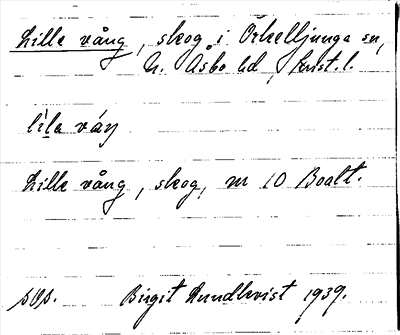 Lille vång, skog i Örkelljunga sn,
N. Åsbo hd, Krist. l.
lìla váŋ
Lille vång, skog, nr 10 Boalt.
sOs. Birgit Rundkvist 1939.